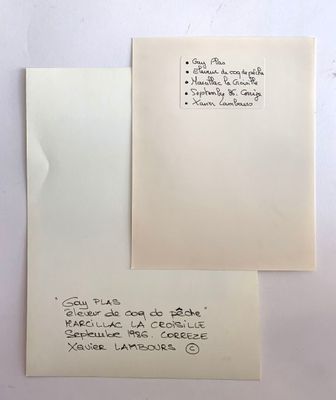 • Guy Plas
• Eleveur de coq de pêche
• Marcillac la Croisille
• Septembre 86. Corrèze
• Xavier Lambours
"Guy PLAS
éleveur de coq de pêche"
MARCILLAC LA CROISILLE
Septembre 1986. CORREZE
Xavier LAMBOURS ©